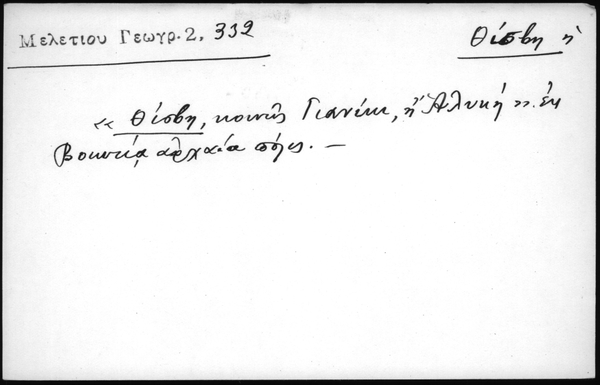 Μελετίου Γεωγρ. 2, 332
Θίσβη ἡ
«Θίσβη, κοινῶς Γιανίκι, ἢ Ἁλυκή». ἐν
Βοιωτίᾳ ἀρχαία πόλις. —